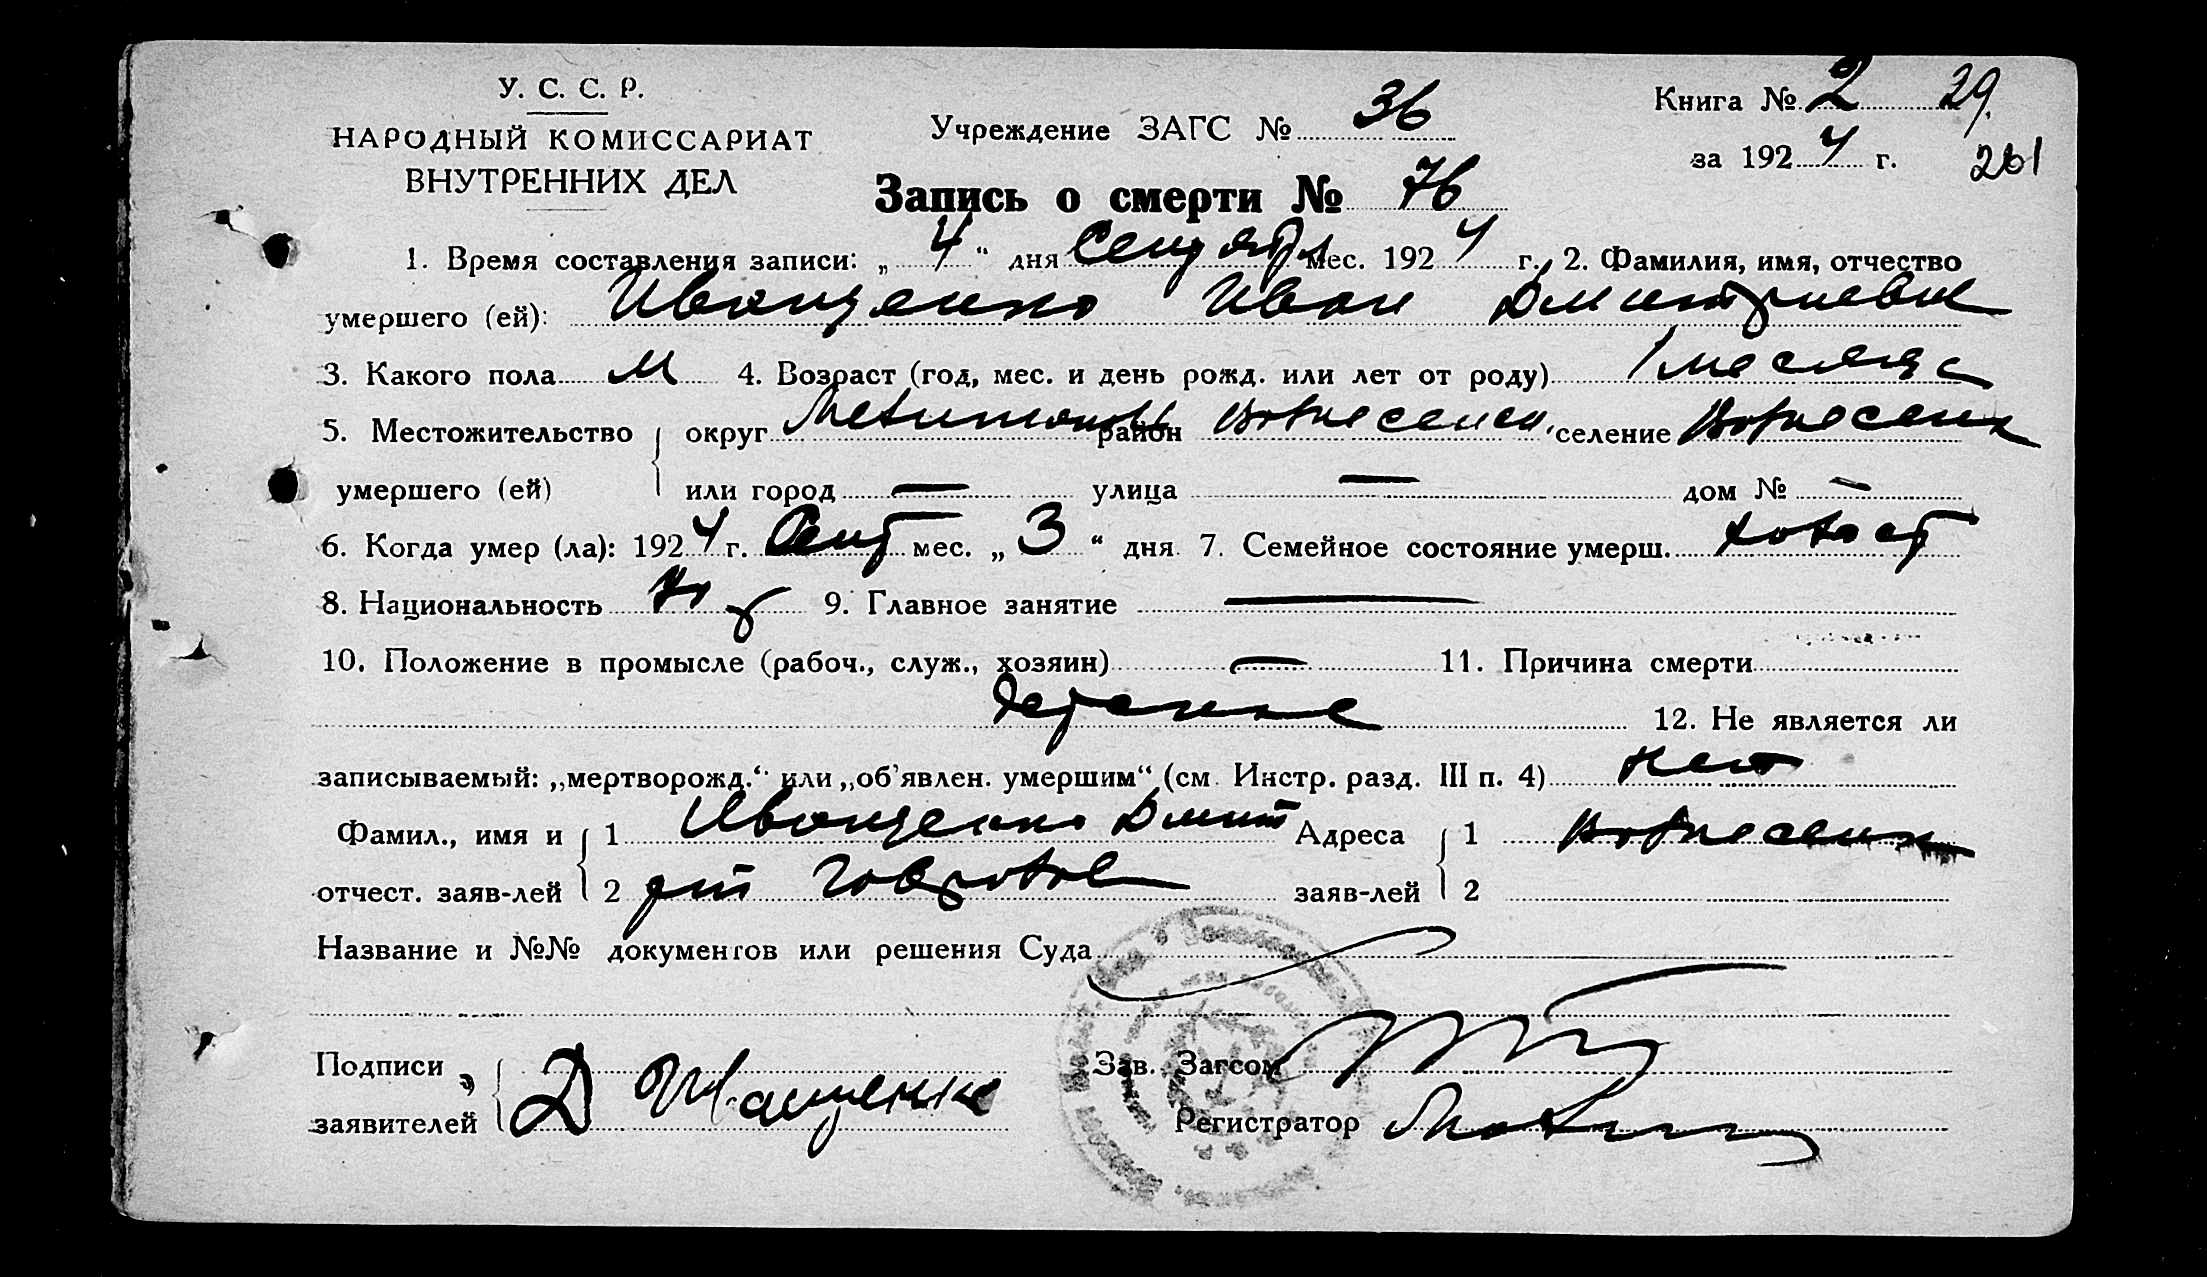 У. С. С. Р.
НАРОДНЫЙ КОМИССАРИАТ
ВНУТРЕННИХ ДЕЛ
Учреждение ЗАГС № 36
Книга № 2 29.
за 1924 г. 261
Запись о смерти № 76
1. Время составления записи: „4“ дня мес. 1924 г. 2. Фамилия, имя, отчество
умершего (ей): Иванценко Иван Дмитриевич
3. Какого пола М 4. Возраст (год, мес. и день рожд. или лет от роду) 1 месяца
5. Местожительство округ район Вознесенск, селение Вознесенк
умершего (ей) или город — улица — дом № —
6. Когда умер (ла): 1924 г. Сент мес. „3“ дня 7. Семейное состояние умерш. холост
8. Национальность 9. Главное занятие —
10. Положение в промысле (рабоч., служ., хозяин) — 11. Причина смерти
12. Не является ли
записываемый: „мертворожд.“ или „об'явлен. умершим“ (см. Инстр. разд. III п. 4) нет
Фамил., имя и 1 Иванценко Дмит Адреса 1 Вознесенк
отчест. заяв-лей 2 заяв-лей 2
Название и №№ документов или решения Суда
Подписи Зав. Загсом
заявителей Д Иванценко Регистратор